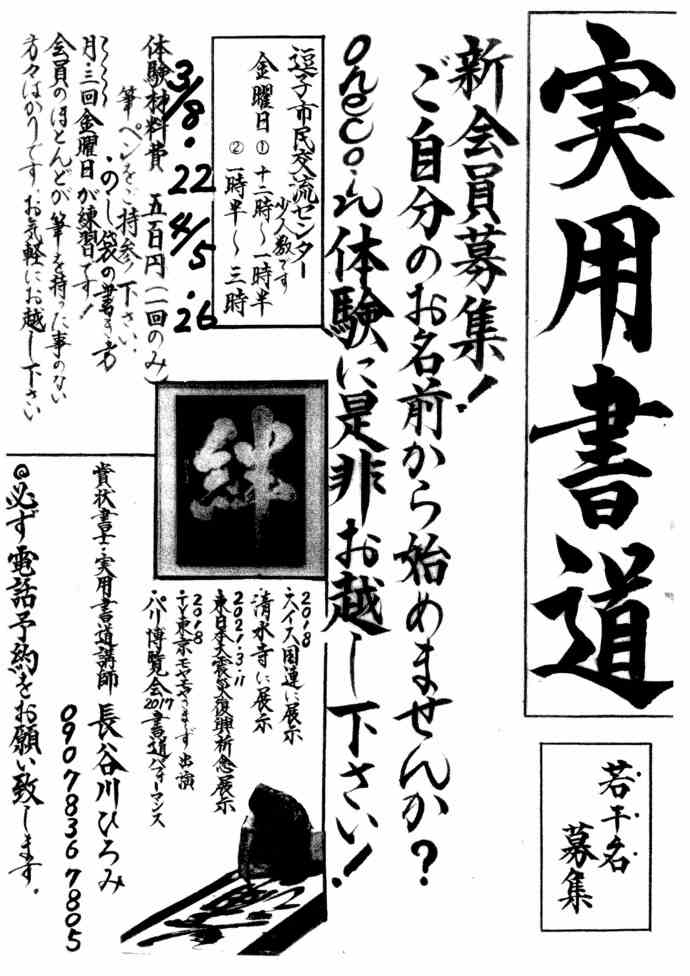 実用書道
若干名
募集
新会員募集!
ご自分のお名前から始めませんか?
onecoin体験に是非お越し下さい!
逗子市民交流センター
少人数です
金曜日①十二時〜一時半
②一時半〜三時
3/8・22 4/5・26
体験材料費 五百円(一回のみ)
筆ペンをご持参下さい。
・のし袋の書き方
月・三回金曜日が練習です!
会員のほとんどが筆を持った事のない
方々ばかりです。お気軽にお越し下さい
絆
2018
スイス国連に展示
清水寺に展示
2021.3.11
東日本大震災復興祈念展示
2018
TV東京モヤモヤさまぁず出演
パリ博覧会2017書道パフォーマンス
賞状書士・実用書道講師 長谷川ひろみ
09078367805
◎必ず電話予約をお願い致します。